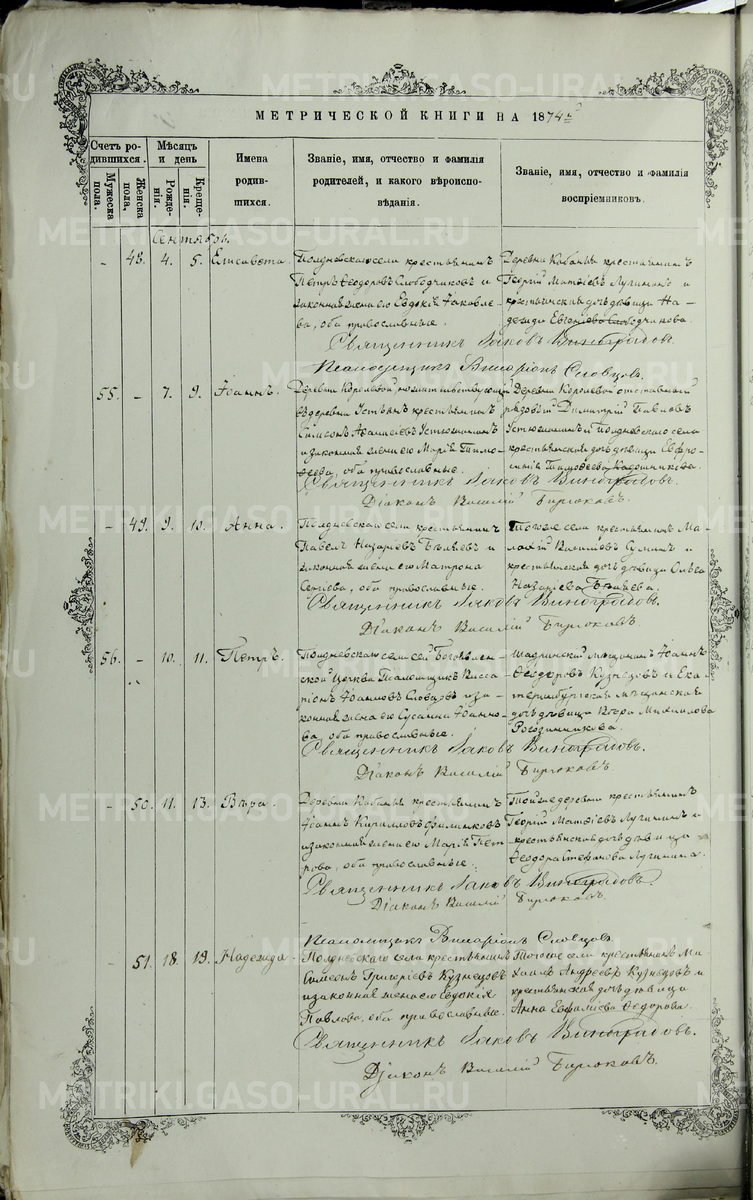 МЕТРИЧЕСКОЙ КНИГИ НА 1874й
Счетъ родившихся.
Мужеска пола.
Женска пола.
Мѣсяцъ и день
Рожденія.
Крещенія.
Имена родившихся.
Званіе, имя, отчество и фамилія родителей, и какого вѣроисповѣданія.
Званіе, имя, отчество и фамилія воспріемниковъ.
Сентябрь.
- 48. 4. 5. Елисавета.
Полдневскаго села крестьянинъ
Петръ Ѳеодоровъ Слободчиковъ и
законная жена его Евдокія Іаковле-
ва, оба православные.
Деревни Кабаньи крестьянинъ
Георгій Матѳіевъ Лугининъ и
крестьянская дочь дѣвица На-
дежда Слободчикова.
Священникъ Іаковъ Виноградовъ.
Псаломщикъ Висаріонъ Словцовъ.
55. - 7. 9. Іоаннъ.
Деревни Королевой, жительствующій
въ деревни крестьянинъ
Симеонъ Устюжанинъ
и законная жена его Марія Тимо-
ѳеева, оба православные.
Деревни Королевой отставный
рядовой Димитрій Павловъ
Устюжанинъ и Полдневскаго села
крестьянская дочь дѣвица Евфро-
синія Тимоѳеева
Священникъ Іаковъ Виноградовъ.
Діаконъ Василій Бирюковъ.
- 49. 9. 10. Анна.
Полдневскаго села крестьянинъ
Павелъ Назаріевъ Бѣляевъ и
законная жена его Матрона
Сергіева, оба православные.
Тогоже села крестьянинъ Ма-
Василіевъ и
крестьянская дочь дѣвица Ольга
Назаріева Бѣляева.
Священникъ Іаковъ Виноградовъ.
Діаконъ Василій Бирюковъ.
56. - 10. 11. Петръ.
Полдневскаго села Богоявлен-
ской церкви Псаломщикъ Висса-
ріонъ Іоанновъ Словцовъ и за-
конная жена его Сусанна Іоанно-
ва, оба православные.
Шадринскій мѣщанинъ Іоаннъ
Ѳеодоровъ Кузнецовъ и Ека-
теринбургская мѣщанская
дочь дѣвица Вѣра Михаилова
Рогозинникова.
Священникъ Іаковъ Виноградовъ.
Діаконъ Василій Бирюковъ.
- 50. 11. 13. Вѣра.
Деревни Кабаньи крестьянинъ
Іоаннъ Кирилловъ Филинковъ
и законная жена его Марія Пет-
рова, оба православные.
Тойже деревни крестьянинъ
Георгій Матѳіевъ Лугининъ и
крестьянская дочь дѣвица
Ѳеодора Стефанова Лугинина.
Священникъ Іаковъ Виноградовъ.
Діаконъ Василій Бирюковъ.
Псаломщикъ Висаріонъ Словцовъ.
- 51. 18. 19. Надежда.
Полдневскаго села крестьянинъ
Симеонъ Григоріевъ Кузнецовъ
и законная жена его Евдокія
Павлова, оба православные.
Тогоже села крестьянинъ Ми-
хаилъ Андреевъ Кузнецовъ и
крестьянская дочь дѣвица
Анна Евфиміева Ѳедорова.
Священникъ Іаковъ Виноградовъ.
Діаконъ Василій Бирюковъ.
METRIKI.GASO-URAL.RU